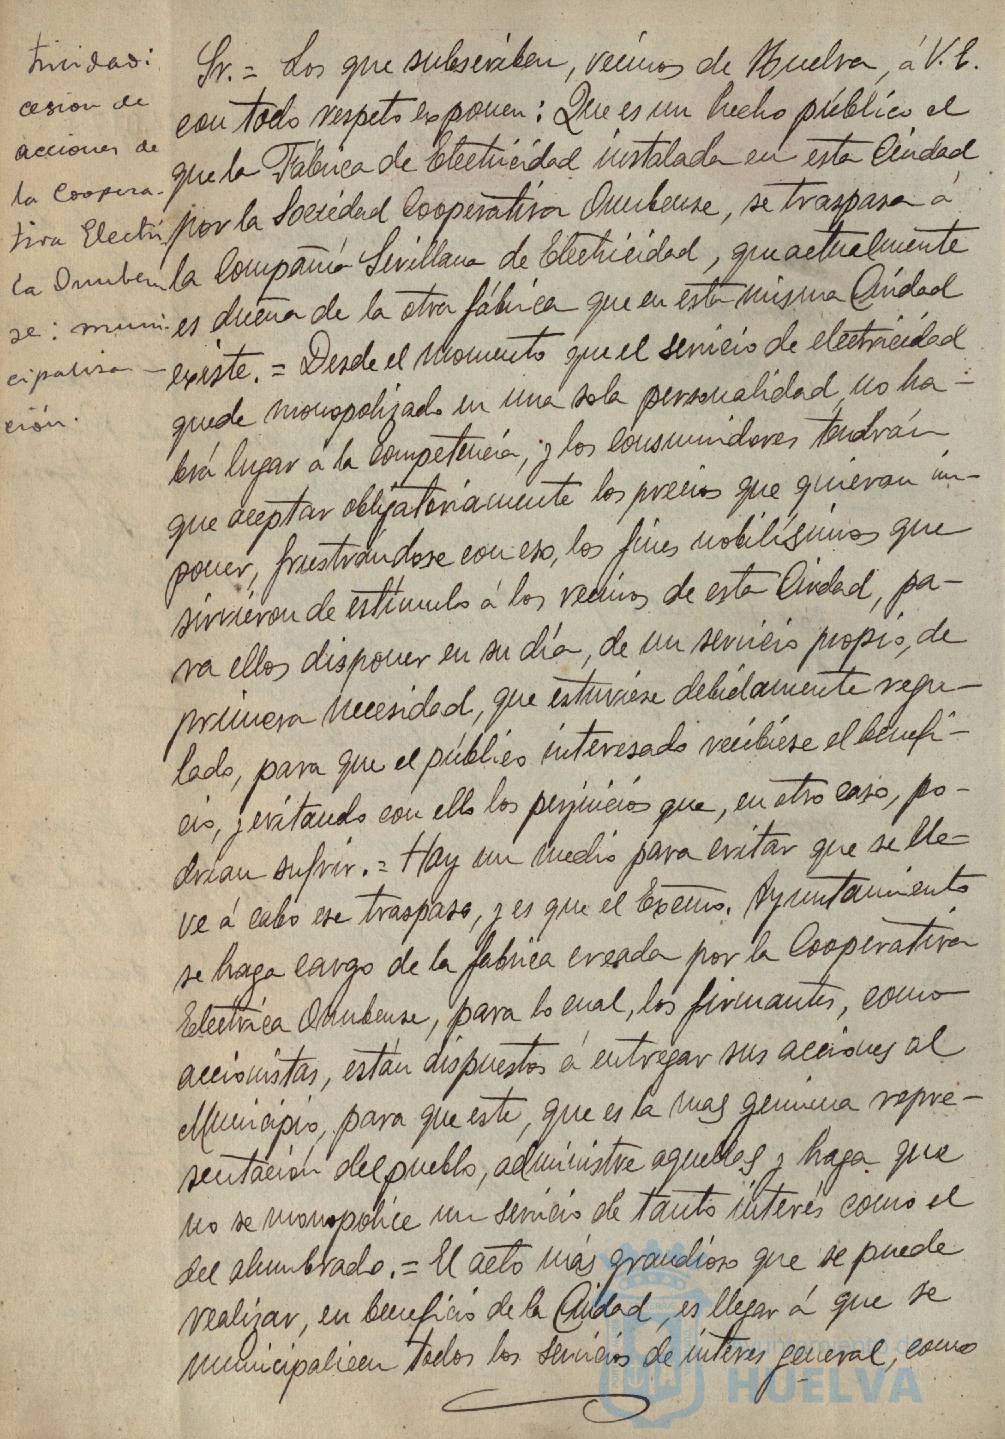 tricidad:
cesión de
acciones de
la Coopera-
tiva Eléctri
ca Onuben
se: muni-
cipaliza-
ción.
Sr.= Los que subscriben, vecinos de Huelva, á V.E.
con todo respeto exponen: Que es un hecho público el
que la Fábrica de Electricidad instalada en esta Ciudad
por la Sociedad Cooperativa Onubense, se traspasa á
la Compañía Sevillana de Electricidad, que actualmente
es dueña de la otra fábrica que en esta misma Ciudad
existe.= Desde el momento que el servicio de electricidad
quede monopolizado en una sola personalidad, no ha-
brá lugar á la competencia, y los consumidores tendrán
que aceptar obligatoriamente los precios que quieran im-
poner, frustrándose con eso, los fines nobilísimos que
sirvieron de estímulo á los vecinos de esta Ciudad, pa-
ra ellos disponer en su día, de un servicio propio, de
primera necesidad, que estuviese debidamente regu-
lado, para que el público interesado recibiese el benefi-
cio, y evitando con ello los perjuicios que, en otro caso, po-
drían sufrir.= Hay un medio para evitar que se lle-
ve á cabo ese traspaso, y es que el Excmo. Ayuntamiento
se haga cargo de la fábrica creada por la Cooperativa
Eléctrica Onubense, para lo cual, los firmantes, como
accionistas, están dispuestos á entregar sus acciones al
Municipio, para que este, que es la mas genuina repre-
sentación del pueblo, administre aquellas y haga que
no se monopolice un servicio de tanto interés como el
del alumbrado.= El acto más grandioso que se puede
realizar, en beneficio de la Ciudad, es llegar á que se
municipalicen todos los servicios de interes general, como
Ayuntamiento de
HUELVA